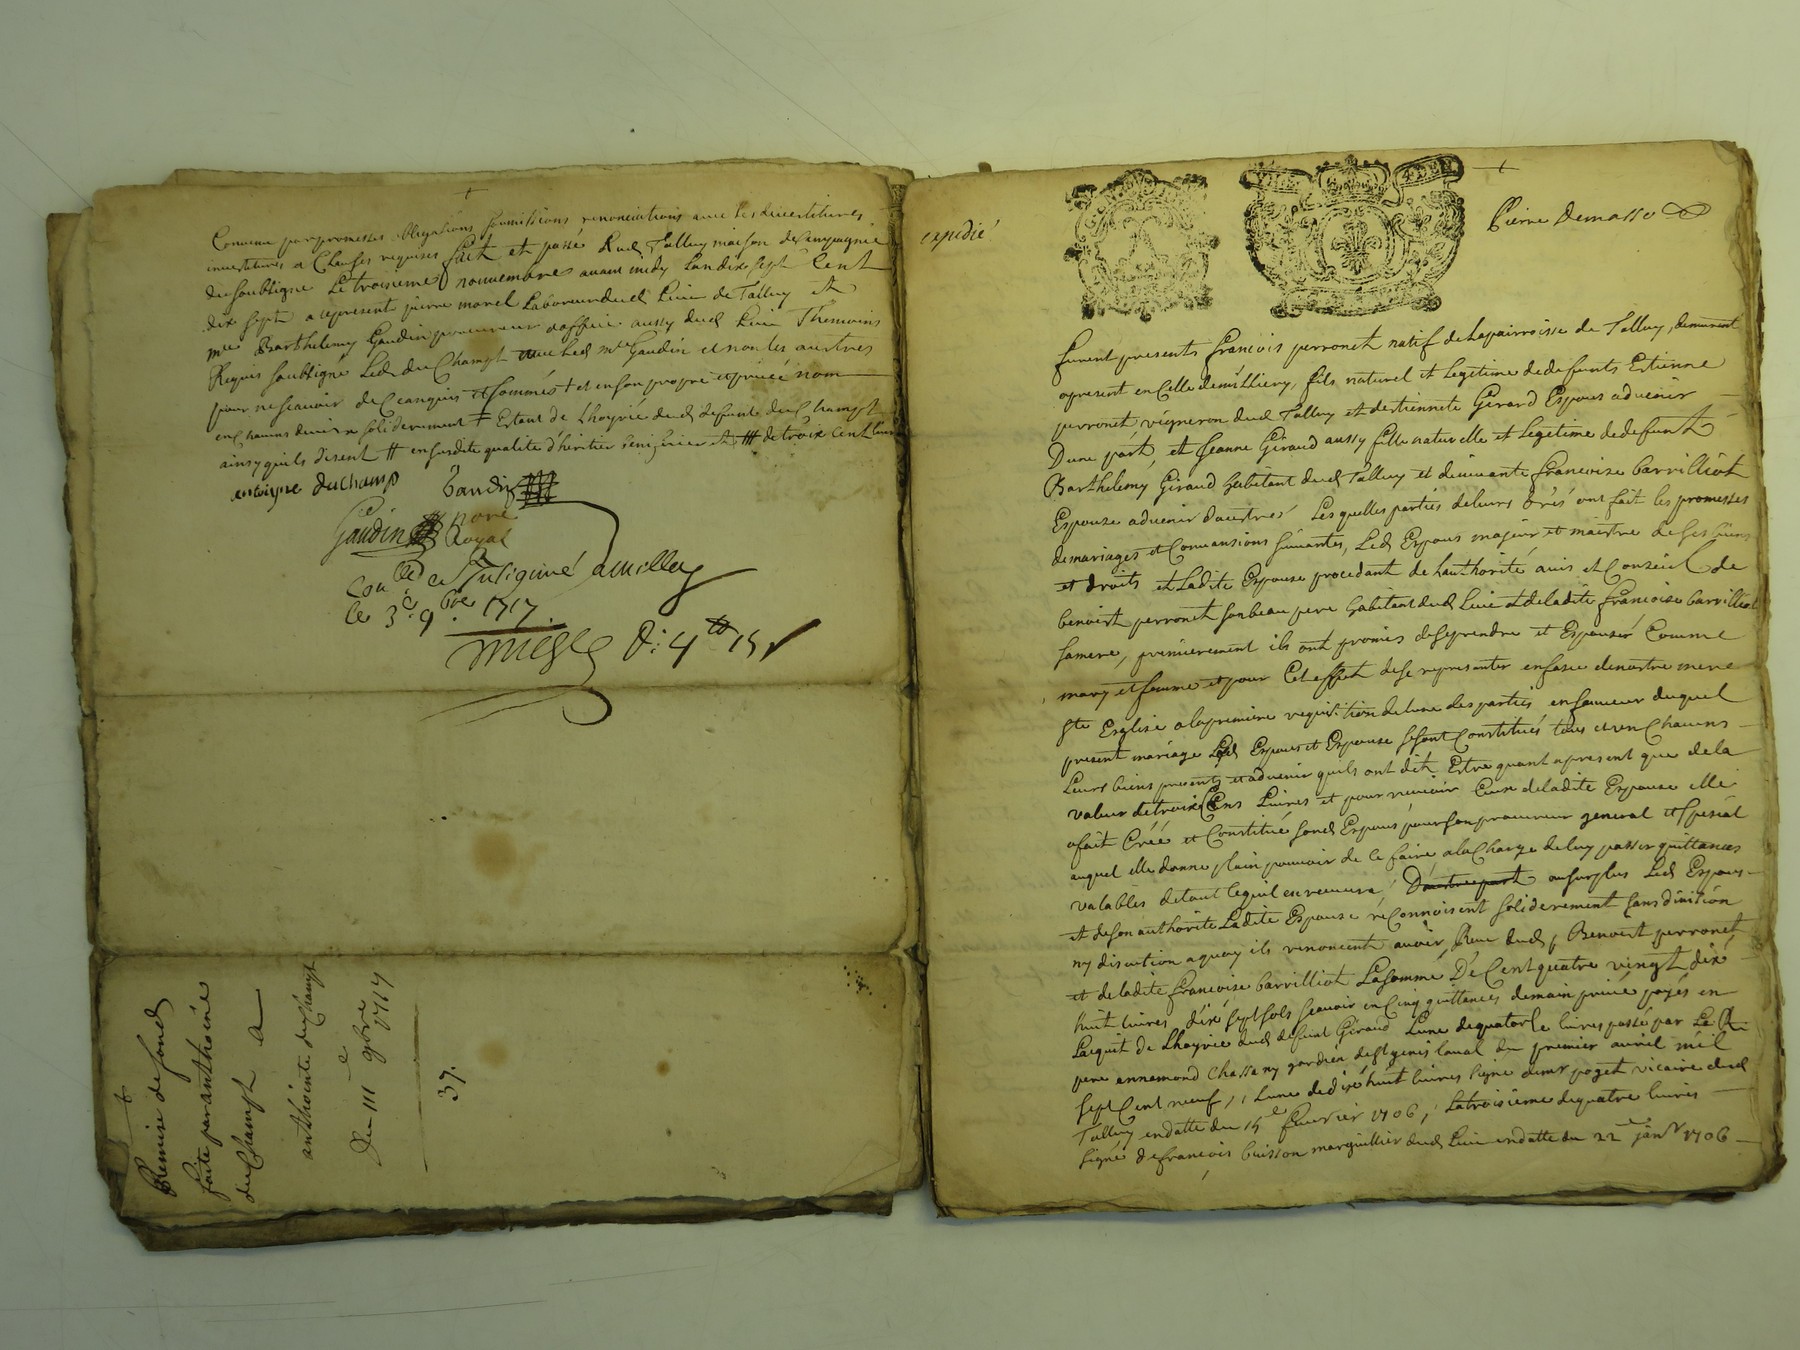 Convenu par promesses obligations soumissions renonciations avec les devestitures
investitures a Clauses requises fait et passé Aud Talluy maison de Campagne
du soubsigne Le troisieme novembre avant midy Lan dix sept Cent
dix sept a ce present pierre morel Laboureur dud Lieu de Talluy et
mre Barthelemy Gaudin procureur doffice aussy dud Lieu Themoins
Requis soubsigné Led du Champt avec Led mre Gaudin et non les autres
pour ne scavoir de Ce enquis et sommés + et en son propre et privé nom
en chacuns deux solidairement ǂ Estant de Lhoyrie dud defunt du Champt
ainsy quils disent # en susdite qualite d'heritier de troix cent livres
antoisne duchamp
Gaudin
Royal
Conlle et Insigniné a millery
Le 3e. 9bre. 1717.
D: 4tt 15
Remise de fond
faite par anthoine
du Champt a
anthointe du Champt
Du III e 9bre 1717
37.
expedié
Pierre Demasso
furent presents francois perronet natif de La parroisse de Talluy, demeurant
apresent en Celle de millery, fils naturel et Legitime de defunts Etienne
perronet vigneron dud Talluy et destiennete Girard Espous advenir
Dune párt, et Jeanne Giraud aussy fille naturelle et Legitime de defunt
Barthelemy Giraud habitant dud Talluy et de vivante francoise barrilliot
Espouse advenir dautres Les quelles parties de leurs grés ont fait les promesses
de mariages et Convansions suivantes, Led Espous majeur et maistre de ses biens
et droits et Ladite Espouse procedant de Lauthorité avis et Conseil de
benoist perronet son beau pere habitant dud Lieu et de ladite francoise barrilliot
sa mere, premierement ils ont promis de se prendre et Espouser Comme
mary et femme et pour Cet effect de se representer en face de nostre mere
Ste Esglise a la premiere requisition de lune des parties en faveur duquel
present mariage Lesd Espous et Espouse se sont Constitués tous et un Chacuns
Leurs biens presents et advenir quils ont dit Estre quant a present que de la
valeur de troix Cens Livres et pour recevoir Ceux de ladite Espouse elle
a fait Créé et Constitué sond Espous pour son procureur general et spesial
auquel elle donne plain pouvoir de Ce faire a la Charge de luy passer quittances
valables de tout Ce quil en recevra / D'autre part au surplus Led Espous
et de son authorité Ladite Espouse reconnoissent soliderement sans division
ny discution a quoy ils renoncent avoir Reçu dud / Benoist perronet
et de ladite francoise barrilliot La somme De Cent quatre vingt dix
huit livres dix sept sols scavoir en Cinq quittances de main privé payés en
Lacquit de Lhoyrie dud defunt Giraud Lune de quatorze livres passé par Le R
pere annemond Chassany gardien de St genis laval du premier avril mil
sept Cent neuf, Lune de dixhuit livres signe de mr poget vicaire dud
Talluy en datte du 15e fevrier 1706, La troisieme de quatre livres
signe de francois buisson marguillier dud Lieu en datte du 22e janr 1706